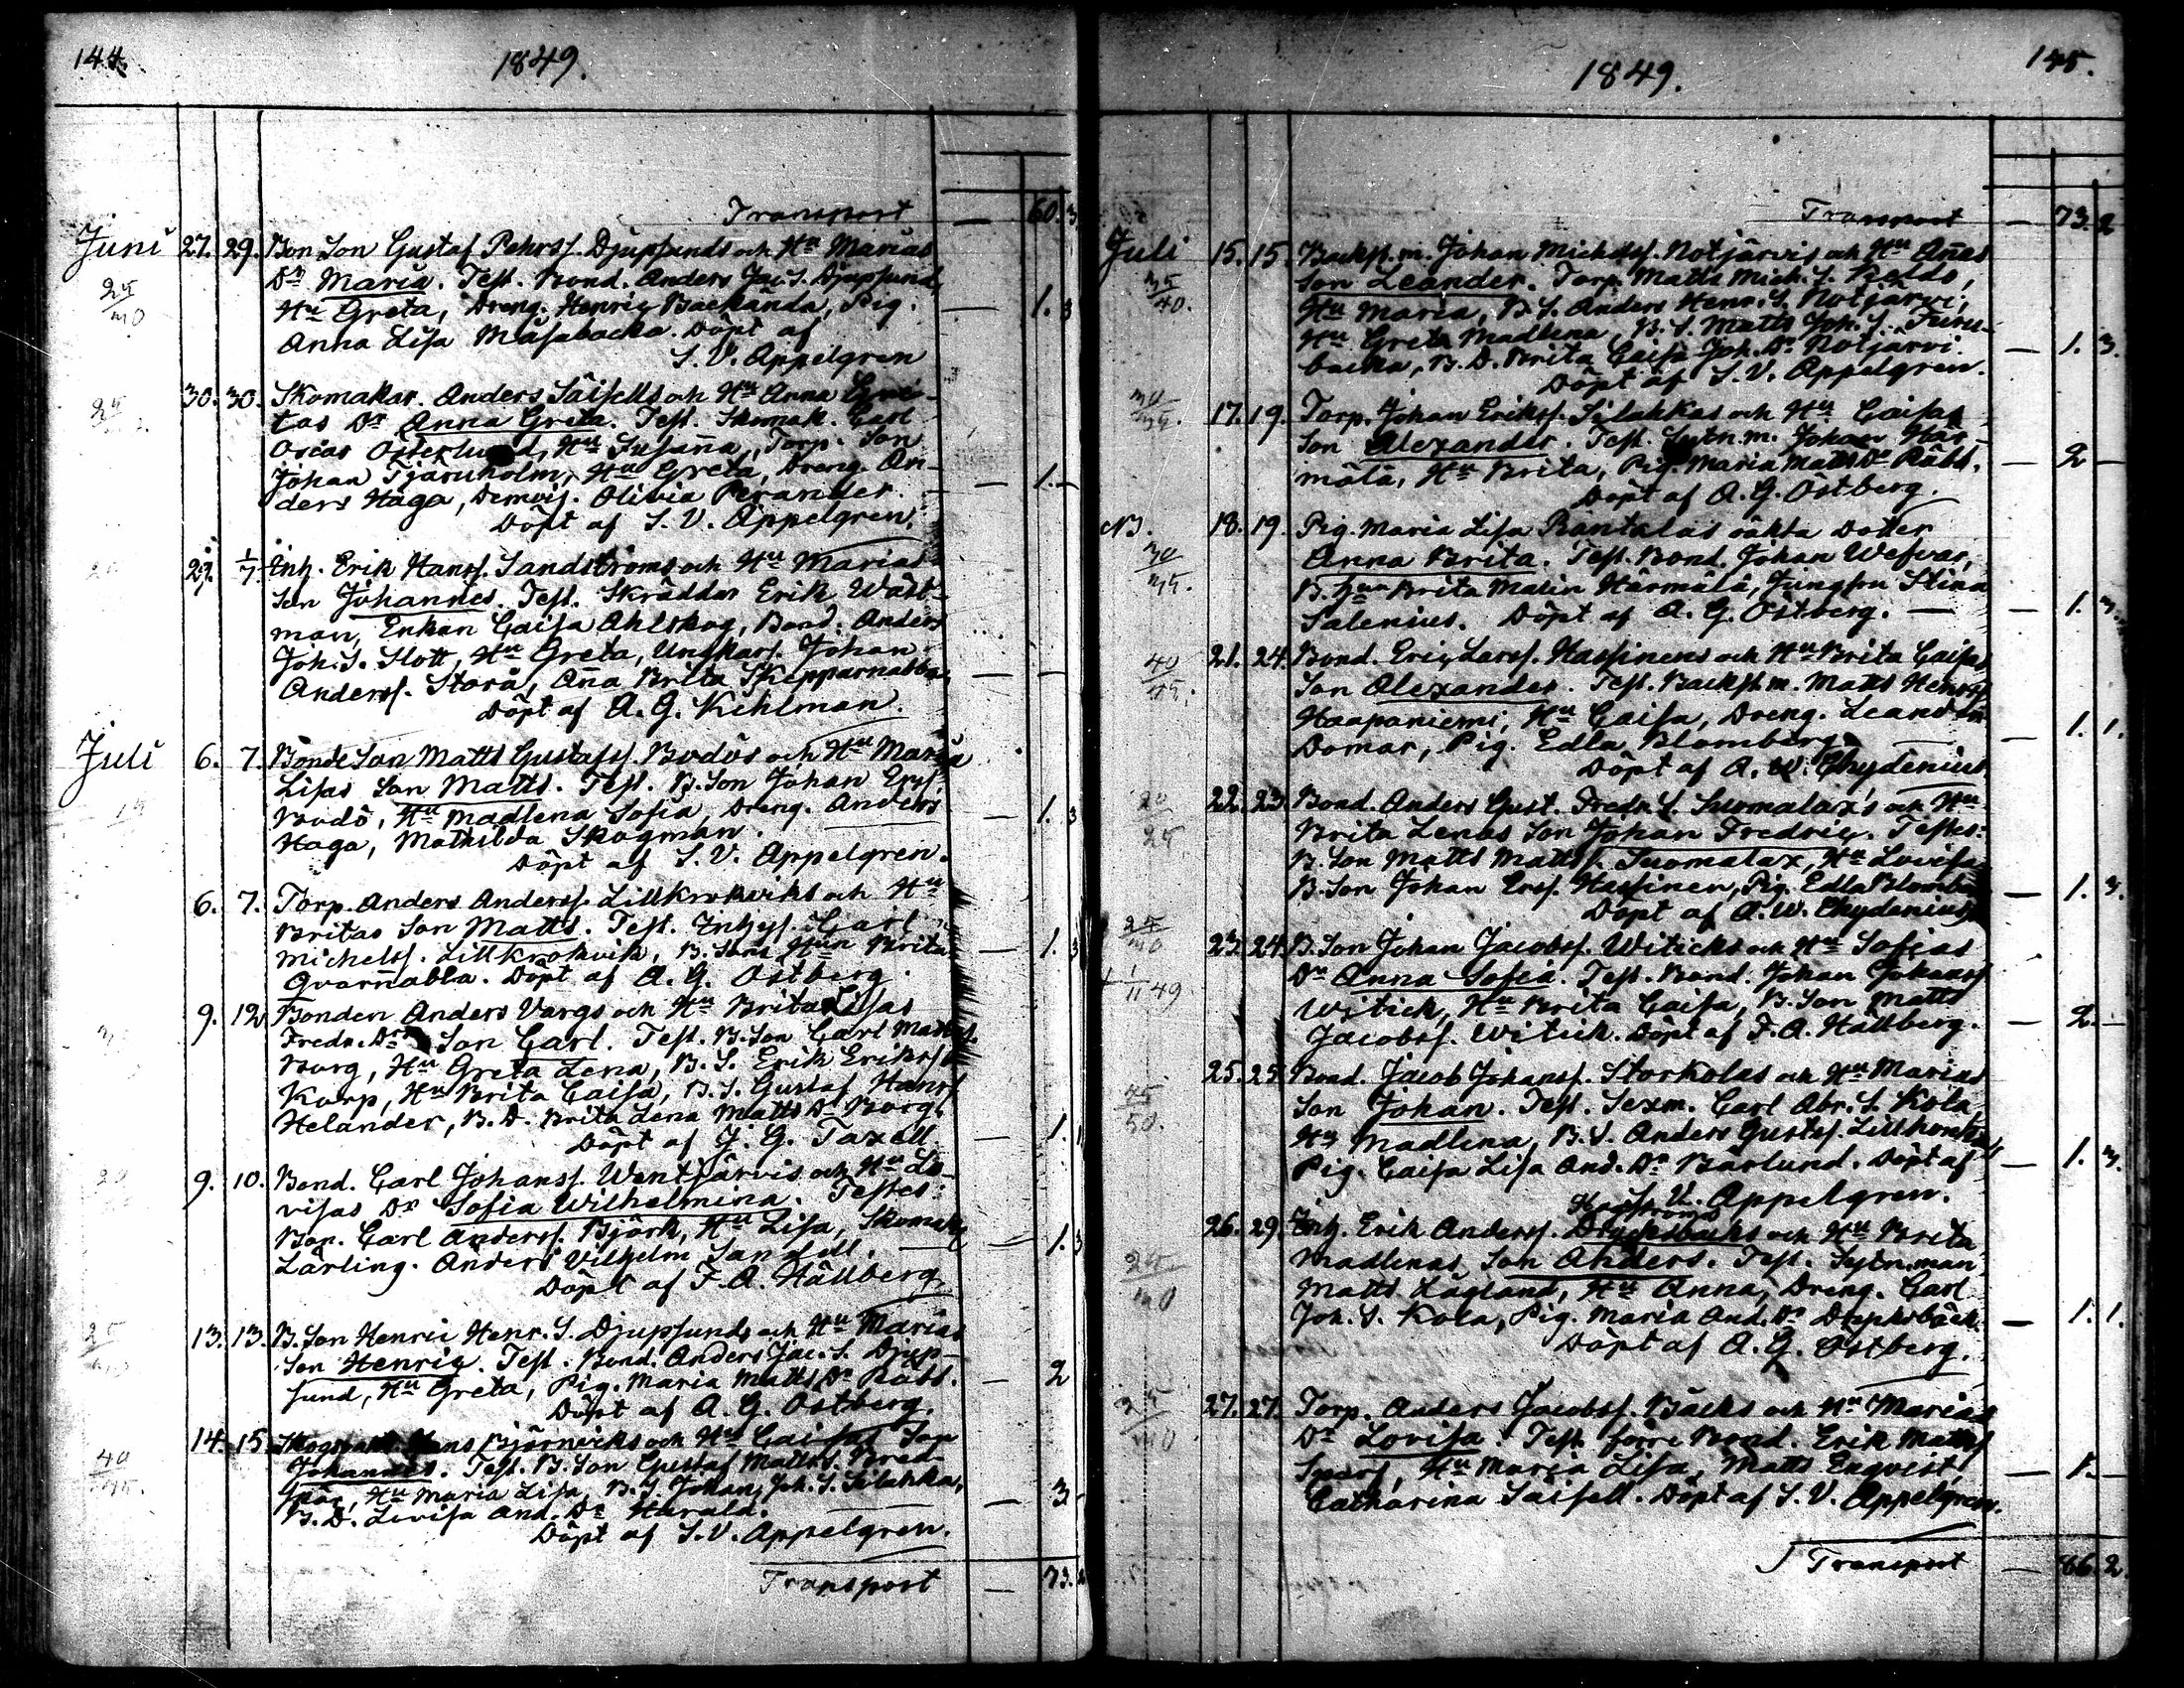 144.
1849.
Transport — 60. 3
Juni 27. 29. Bon Son Gustaf Pehrss. Djupsunds och Hu Marias
25/30 Dr Maria. Test. Bond. Anders Jac. S. Djupsund,
Hu Greta, Dreng. Henric Backanda, Pig. — 1. 3
Anna Lisa Måsabacka. Döpt af
S. V. Appelgren
30. 30. Skomakar. Anders Säisells och Hu Anna Gre-
25 tas Dr Anna Greta. Test. Skomak. Carl
Osias Österlund, Hu Susaña, Torp. Son
Johan Tjäruholm, Hu Greta, Dreng. An-
ders Haga, Demois. Olivia Perander. — 1. —
Döpt af S. V. Appelgren.
29. 1/7. Inh. Erik Hanss. Sandströms och Hu Marias
Son Johannes. Test. Skräddar Erik Wäst-
man, Enkan Caisa Ahlskog, Bond. Anders
Joh. S. Slott, Hu Greta, Ungkarl. Johan
Anderss. Storå, Aña Brita Skepparnabba. — —
Döpt af A. G. Kihlman.
Juli 6. 7. Bonde Son Matts Gustafss. Bodös och Hu Maria
Lisas Son Matts. Test. B. Son Johan Erss.
Bodö, Hu Madlena Sofia, Dreng. Anders — 1. 3
Haga, Mathilda Skogman.
Döpt af S. V. Appelgren.
6. 7. Torp. Anders Anderss. Lillkrokviks och Hu
Britas Son Matts. Test. Inhys. Carl
Michelss. Lillkrokvik, B. Sons Hun Brita — 1. 3
Qvarnabba. Döpt af A. G. Östberg.
9. 12 Bonden Anders Vargs och Hu Brita Lisas
Fredr. Dr Son Carl. Test. B. Son Carl Mattss.
Borg, Hu Greta Lena, B. S. Erik Erikss.
Korp, Hu Brita Caisa, B. S. Gustaf Hanss
Helander, B. D. Brita Lena Matts Dr Borg.
Döpt af J. G. Taxell. — 1. 1
9. 10. Bond. Carl Johanss. Wentjärvis och Hu Lo-
visas Dr Sofia Wilhelmina. Testes:
Bon. Carl Anderss. Björk, Hu Lisa, Skomak. — 1. 3
Lärling. Anders Vilhelm Sandell.
Döpt af F. A. Hällberg
13. 13. B. Son Henric Henr. S. Djupsunds och Hu Marias
25 Son Henric. Test. Bond. Anders Jac. S. Djup-
sund, Hu Greta, Pig. Maria Matts Dr Räbb. — 2
Döpt af A. G. Östberg.
14. 15. Hans Björnviks och Hu Caisas Son
40/45. Johannes. Test. B. Son Gustaf Matts S. Bred-
skär, Hu Maria Lisa, B. S. Johan Joh. S. Silahka, — 3 -
B. D. Lovisa And. Dr Harald.
Döpt af S. V. Appelgren.
Transport — 73. 2
145.
1849.
Transport — 73. 2
Juli 15. 15. Backst. m. Johan Michelss. Notjärvis och Hu Añas
35/40. Son Leander. Torp. Matts Mich. S.
Hu Maria, B. S. Anders Henr. S. Notjärvi,
Hu Greta Madlena, B. S. Matts Joh. S. Furu-
backa, B. D. Brita Caisa Joh. Dr Notjärvi — 1. 3.
Döpt af S. V. Appelgren.
30/35. 17. 19. Torp. Johan Erikss. Silahkas och Hu Caisas
Son Alexander. Test. Sytn. m. Johan Här-
mälä, Hu Brita, Pig. Maria Matts Dr Räbb. — 2 —
Döpt af A. G. Östberg.
NB. 18. 19. Pig. Maria Lisa Rantalas oäkta Dotter
30/35. Anna Brita. Test. Bond. Johan Wefvar,
B. Hu Brita Malin Härmälä, Jungfru Stina
Salenius. Döpt af A. G. Östberg. — 1. 3.
40/45. 21. 24. Bond. Eric Larss. Hassinens och Hu Brita Caisas
Son Alexander. Test. Backst. m. Matts Henrss
Haapaniemi, Hu Caisa, Dreng. Leander
Domar, Pig. Edla Blomberg — 1. 1.
Döpt af A. W. Chydenius
20/25 22. 23. Bond. Anders Gust. Fredr. S. Suomalax's och Hu
Brita Lenas Son Johan Fredric. Testes:
B. Son Matts Mattss. Suomalax, Hu Lovisa,
B. Son Johan Erss. Hassinen, Pig. Edla Blomberg — 1. 3.
Döpt af A. W. Chydenius
25/30 23. 24. B. Son Johan Jacobss. Witicks och Hu Sofias
† 1/11 49 Dr Anna Sofia. Test. Bond. Johan Johanss
Witick, Hu Brita Caisa, B. Son Matts
Jacobss. Witick. Döpt af F. A. Hällberg. — 2. —
25. 25. Bond. Jacob Johanss. Storkolas och Hu Marias
45/50. Son Johan. Test. Sexm. Carl Abr. S. Kola,
Hu Madlena, B. S. Anders Gustafss.
Pig. Caisa Lisa And. Dr Bärlund. Döpt af — 1. 3.
S. V. Appelgren.
26. 29. Inh. Erik Anderss. Dryckesbäcks och Hu Brita
25/30 Madlenas Son Anders. Test. Sytn. man
Matts Lågland, Hu Anna, Dreng. Carl
Joh. S. Kola, Pig. Maria And. Dr Dryksbäck — 1. 1.
Döpt af A. G. Östberg.
25/30 27. 27. Torp. Anders Jacobss. Bäcks och Hu Marias
Dr Lovisa. Test. förre Bond. Erik Mattss
Sparf, Hu Maria Lisa, Matts Enqvist, — 1. —
Catharina Saisell. Döpt af S. V. Appelgren.
Transport — 86. 2.